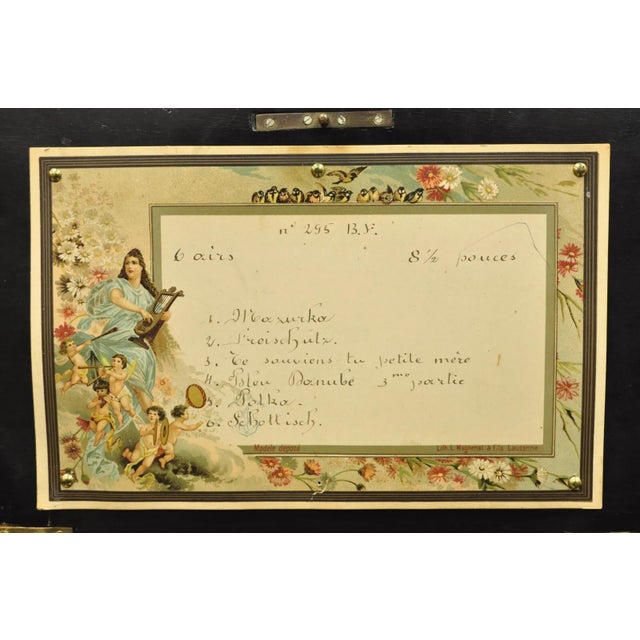 n° 295 B.F.
6 airs 8 ½ pouces
1. Mazurka
2. Freischütz.
3. Te souviens tu petite mère
4. Bleu Danube 3me partie
5. Polka.
6. Schottisch.
Modèle déposé Lith. L. Magnenat & Fils Lausanne